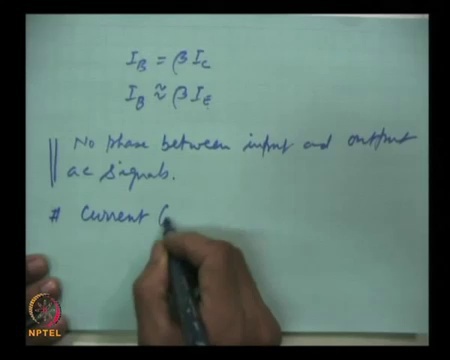 I_B = βI_C
I_B ≈ βI_E
No phase between input and output
ac signals.
# Current (
NPTEL